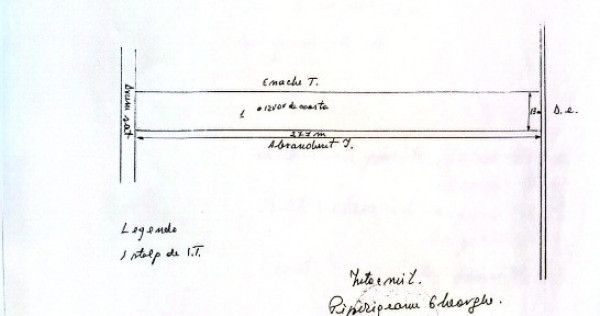 Enache T.
Drum sat
1 izvor de coasta
13 m
D.e.
277 m
Abrandburt I.
Legenda
1 stalp de I.T.
Intocmit.
Pipirigeanu Gheorghe.